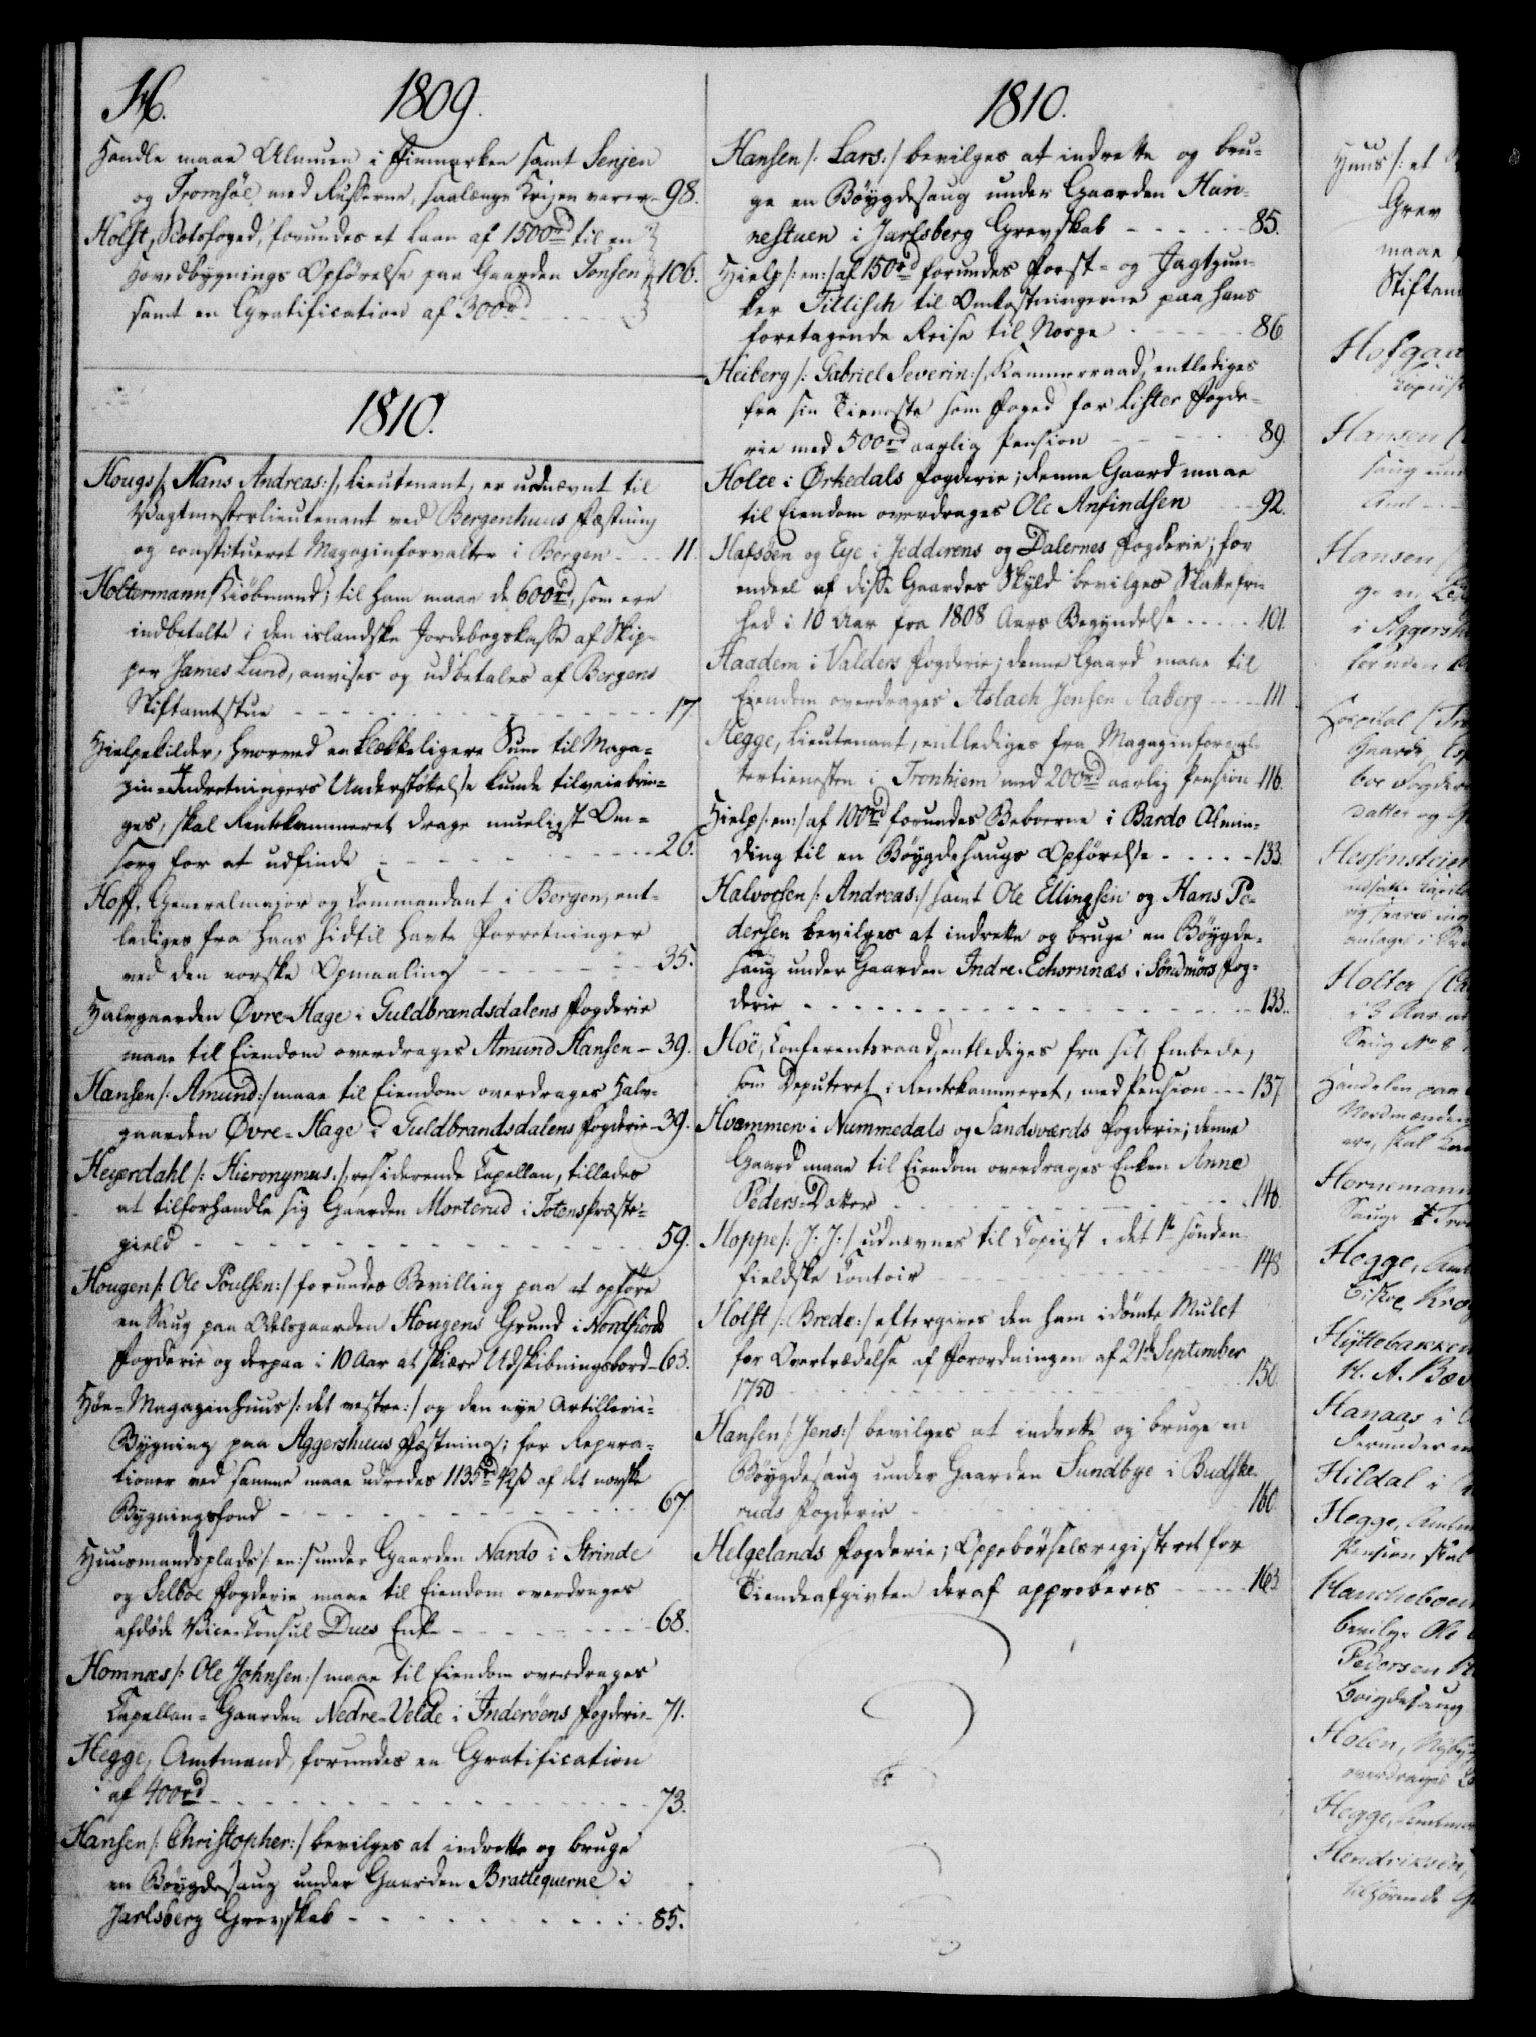 H.
1809.
Handle maae Almuen i Finmarken samt Senjen
og Tromsöe med Russerne, saalænge Krigen varer - 98.
Holst, Slotsfoged, forundes et Laan af 1500rd til en
Hovedbygnings Opförelse paa Gaarden Tonsen - 106.
samt en Gratification af 300rd
1810.
Hougs /: Hans Andreas:/, Lieutenant, er udnævnt til
Vagtmesterlieutenant ved Bergenhuus Fæstning
og constitueret Magazinforvalter i Bergen - - - 11.
Holtermann Kiöbmand; til ham maae de 600rd, som ere
indbetalte i den islandske Jordebogskasse af Skip-
per James Lund, anvises og udbetales af Bergens
Stiftamtstue - - - 17
Hielpekilder, hvorved en tilstrækkeligere Sum til Maga-
zin-Indretningers Understöttelse kunde tilveiebrin-
ges, skal Rentekammeret drage mueligst Om-
sorg for at udfinde - - - 26.
Hoff, Generalmajor og Commandant i Bergen, ent-
lediges fra hans hidtil havte Forretninger
ved den norske Opmaaling - - - 35.
Halvgaarden Øvre-Hage i Guldbrandsdalens Fogderie
maae til Eiendom overdrages Amund Hansen - 39.
Hansen /: Amund:/ maae til Eiendom overdrages Halv-
gaarden Øvre-Hage i Guldbrandsdalens Fogderie - 39.
Heyerdahl /: Hieronymus:/, residerende Capellan, tillades
at tilforhandle sig Gaarden Morterud i Totens Præste-
gield - - - 59.
Hougen /: Ole Poulsen:/ forundes Bevilling paa at opföre
en Saug paa Odelsgaarden Hougens Grund i Nordfiords
Fogderie og derpaa i 10 Aar at skiære Udskibningsbord - 63.
Höe-Magazinhuus /: det vestre:/ og den nye Artillerie-
Bygning paa Aggershuus Fæstning; for Repara-
tioner ved samme maae udredes 1135rd 42s af det norske
Bygningsfond - - - 67.
Huusmandsplads /: en:/ under Gaarden Nardo i Strinde
og Selboe Fogderie maae til Eiendom overdrages
afdöde Vice-Consul Dues Enke - - - 68.
Homnæs /: Ole Johnsen:/ maae til Eiendom overdrages
Capellan-Gaarden Nedre-Velde i Inderöens Fogderie - 71.
Hegge, Amtmand, forundes en Gratification
af 400rd - - - 73.
Hansen /: Christopher:/ bevilges at indrette og bruge
en Böygdesaug under Gaarden Brattequerne i
Jarlsberg Grevskab - - - 85.
1810.
Hansen /: Lars:/ bevilges at indrette og bru-
ge en Böygdesaug under Gaarden Han-
nestuen i Jarlsberg Grevskab - - - 85.
Hielp /: en:/ af 150rd forundes Forst- og Jagtjun-
ker Tillisch til Omkostningerne paa hans
foretagende Reise til Norge - - - 86
Heiberg /: Gabriel Severin:/, Kammerraad, entlediges
fra sin Tieneste som Foged for Lister Fogde-
rie med 500rd aarlig Pension - - - 89.
Holte i Ørkedals Fogderie; denne Gaard maae
til Eiendom overdrages Ole Anfindsen - - 92.
Hafsöen og Eye i Jedderens og Dalernes Fogderie; for
endeel af disse Gaardes Skyld bevilges Skattefri-
hed i 10 Aar fra 1808 Aars Begyndelse - - - 101
Haadem i Valders Fogderie; denne Gaard maae til
Eiendom overdrages Aslach Jensen Aaberg - - - 111
Hegge, Lieutenant, entlediges fra Magazinforval-
tertienesten i Tronhiem med 200rd aarlig Pension - 116.
Hielp /: en:/ af 100rd forundes Beboerne i Bardo Almin-
ding til en Böygdesaugs Opförelse - - - 133.
Halvorsen /: Andreas:/ samt Ole Ellingsen og Hans Pe-
dersen bevilges at indrette og bruge en Böygde-
saug under Gaarden Indre-Echornnæs i Söndmörs Fog-
derie - - - 133.
Höe, Conferentsraad, entlediges fra sit Embede,
som Deputeret i Rentekammeret, med Pension - - - 137
Hvammen i Nummedals og Sandsværds Fogderie; denne
Gaard maae til Eiendom overdrages Enken Anne
Peders-Datter - - - 146.
Hoppe /: J. J.:/ udnævnes til Copiist i det 1ste sönden-
fieldske Contoir - - - 148
Holst /: Brede:/ eftergives den ham idömte Mulct
for Overtrædelse af Forordningen af 21de September
1750 - - - 150.
Hansen /: Jens:/ bevilges at indrette og bruge en
Böygdesaug under Gaarden Sundbye i Budske-
ruds Fogderie - - - 160
Helgelands Fogderie; Oppebörselsregisteret for
Tiendeafgivten deraf approberes - - - 163
Huus /: et
Grev
maae
Stiftam
Hofgaa
Copiist
Hansen
saug und
Amt
Hansen
ge en
i Aggersh
Hospital
Gaarde
datter og
Hessenstein
Holter
i 3 Aar at
Saug No 8
Handelen paa
Nordmænden
Hornemann
Saug
Hegge, Amt
Hyttebakken
H. A. Bæ
Hanaas i
forundes en
Hildal i
Hegge, Amtm
Pension skal
Hancheboen
bevilges Ole
Pedersen
böigdesaug
Holen, Nybyg
overdrages
Hegge, Amtman
Hendrixven,